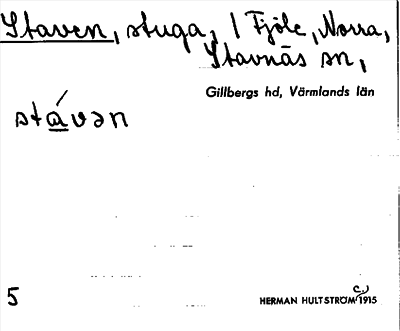 Staven, stuga, 1 Fjöle, Norra,
Stavnäs sn,
Gillbergs hd, Värmlands län
stávən
5
HERMAN HULTSTRÖM c. 1915